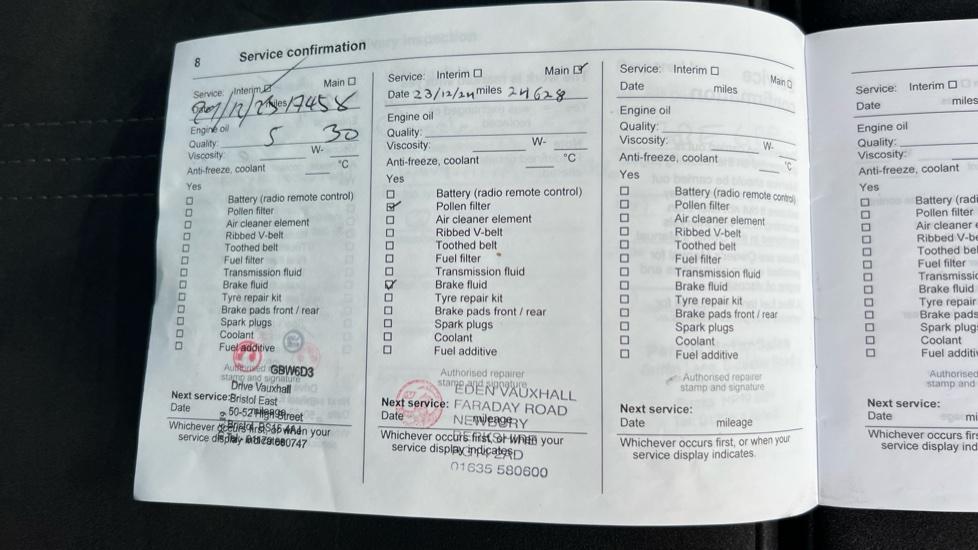 8 Service confirmation
Service: Interim ☑ Main ☐
miles 17458
Engine oil
Quality: 5 30
Viscosity: W-
Anti-freeze, coolant °C
Yes
☐ Battery (radio remote control)
☐ Pollen filter
☐ Air cleaner element
☐ Ribbed V-belt
☐ Toothed belt
☐ Fuel filter
☐ Transmission fluid
☐ Brake fluid
☐ Tyre repair kit
☐ Brake pads front / rear
☐ Spark plugs
☐ Coolant
☐ Fuel additive
GBW6D3
Authorised repairer
stamp and signature
Drive Vauxhall
Next service: Bristol East
Date mileage
50-52 High Street
Whichever occurs first, or when your
service display indicates.
Service: Interim ☐ Main ☑
Date 23/12/24 miles 24628
Engine oil
Quality:
Viscosity: W-
Anti-freeze, coolant °C
Yes
☐ Battery (radio remote control)
☑ Pollen filter
☐ Air cleaner element
☐ Ribbed V-belt
☐ Toothed belt
☐ Fuel filter
☐ Transmission fluid
☑ Brake fluid
☐ Tyre repair kit
☐ Brake pads front / rear
☐ Spark plugs
☐ Coolant
☐ Fuel additive
Authorised repairer
stamp and signature
EDEN VAUXHALL
Next service: FARADAY ROAD
Date mileage
NEWBURY
Whichever occurs first, or when your
service display indicates.
01635 580600
Service: Interim ☐ Main ☐
Date miles
Engine oil
Quality:
Viscosity: W-
Anti-freeze, coolant °C
Yes
☐ Battery (radio remote control)
☐ Pollen filter
☐ Air cleaner element
☐ Ribbed V-belt
☐ Toothed belt
☐ Fuel filter
☐ Transmission fluid
☐ Brake fluid
☐ Tyre repair kit
☐ Brake pads front / rear
☐ Spark plugs
☐ Coolant
☐ Fuel additive
Authorised repairer
stamp and signature
Next service:
Date mileage
Whichever occurs first, or when your
service display indicates.
Service: Interim ☐
Date miles
Engine oil
Quality:
Viscosity:
Anti-freeze, coolant
Yes
☐ Battery (radi
☐ Pollen filter
☐ Air cleaner e
☐ Ribbed V-be
☐ Toothed bel
☐ Fuel filter
☐ Transmissio
☐ Brake fluid
☐ Tyre repair
☐ Brake pads
☐ Spark plug
☐ Coolant
☐ Fuel additi
Authorised
stamp and
Next service:
Date mi
Whichever occurs firs
service display ind